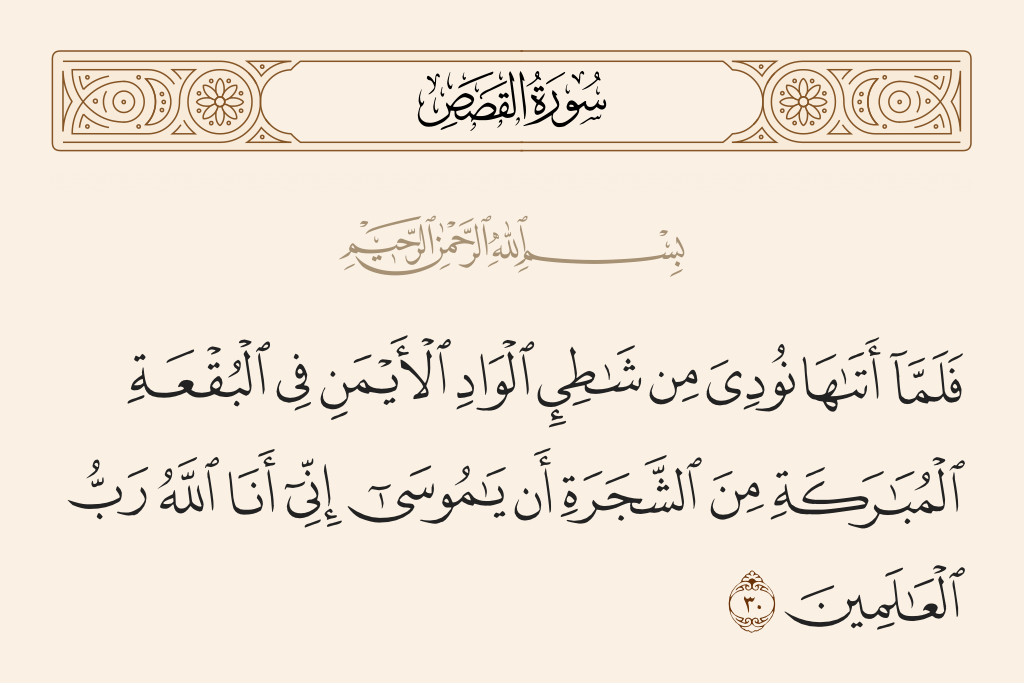 سُورَةُ القَصَصِ
بِسْمِ ٱللَّهِ ٱلرَّحْمَٰنِ ٱلرَّحِيمِ
فَلَمَّآ أَتَىٰهَا نُودِىَ مِن شَـٰطِئِ ٱلْوَادِ ٱلْأَيْمَنِ فِى ٱلْبُقْعَةِ
ٱلْمُبَـٰرَكَةِ مِنَ ٱلشَّجَرَةِ أَن يَـٰمُوسَىٰٓ إِنِّىٓ أَنَا ٱللَّهُ رَبُّ
ٱلْعَـٰلَمِينَ ٣٠